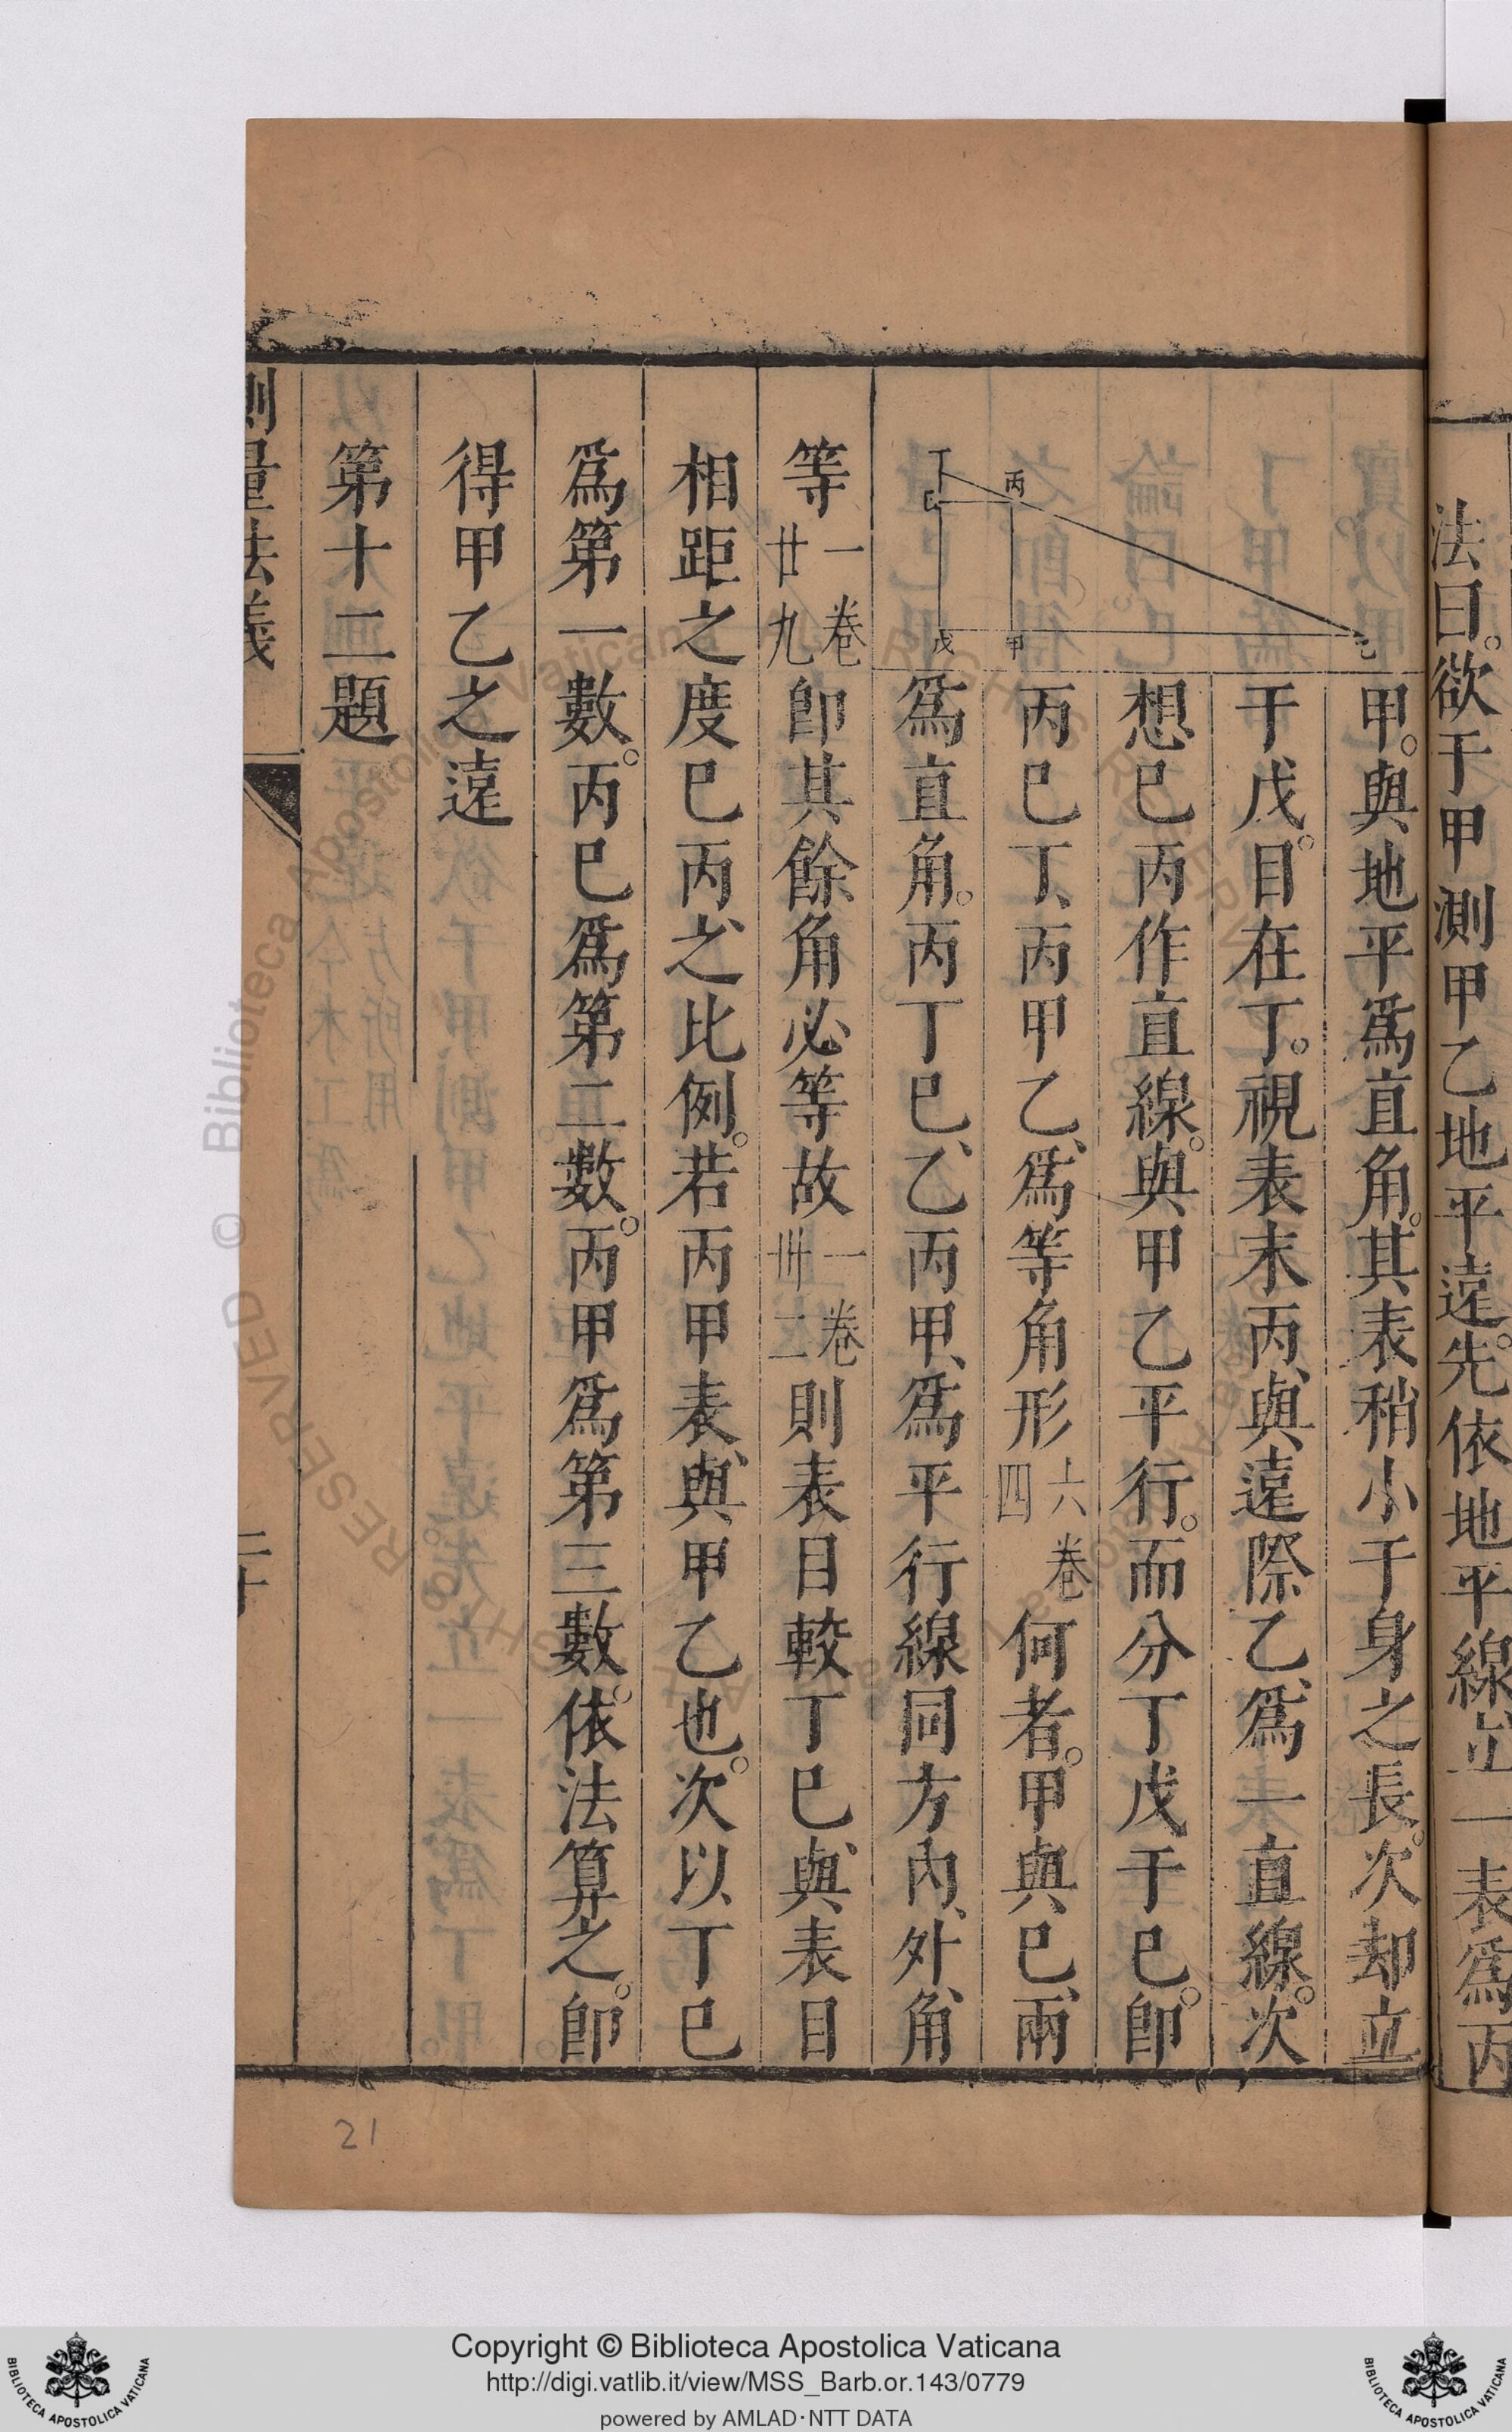 法曰。欲于甲測甲乙地平遠。先依地平線立一表爲丙
甲。與地平爲直角。其表稍小于身之長。次却立
于戊。目在丁。視表末丙、與遠際乙、爲一直線。次
想巳丙作直線。與甲乙平行。而分丁戊于巳。卽
丙巳丁、丙甲乙、爲等角形六卷四何者。甲與、巳、兩
爲直角。丙丁巳、乙丙甲、爲平行線同方內、外、角
等一卷廿九卽其餘角必等故一卷卅二則表目較丁巳、與表目
相距之度巳丙、之比例。若丙甲表、與甲乙也。次以丁巳
爲第一數。丙巳爲第二數。丙甲爲第三數。依法算之。卽
得甲乙之遠
第十二題
丁
丙
戊
甲
乙
測量法義
二十
21
© Biblioteca Apostolica Vaticana
Copyright © Biblioteca Apostolica Vaticana
http://digi.vatlib.it/view/MSS_Barb.or.143/0779
powered by AMLAD·NTT DATA
BIBLIOTECA APOSTOLICA VATICANA
BIBLIOTECA APOSTOLICA VATICANA